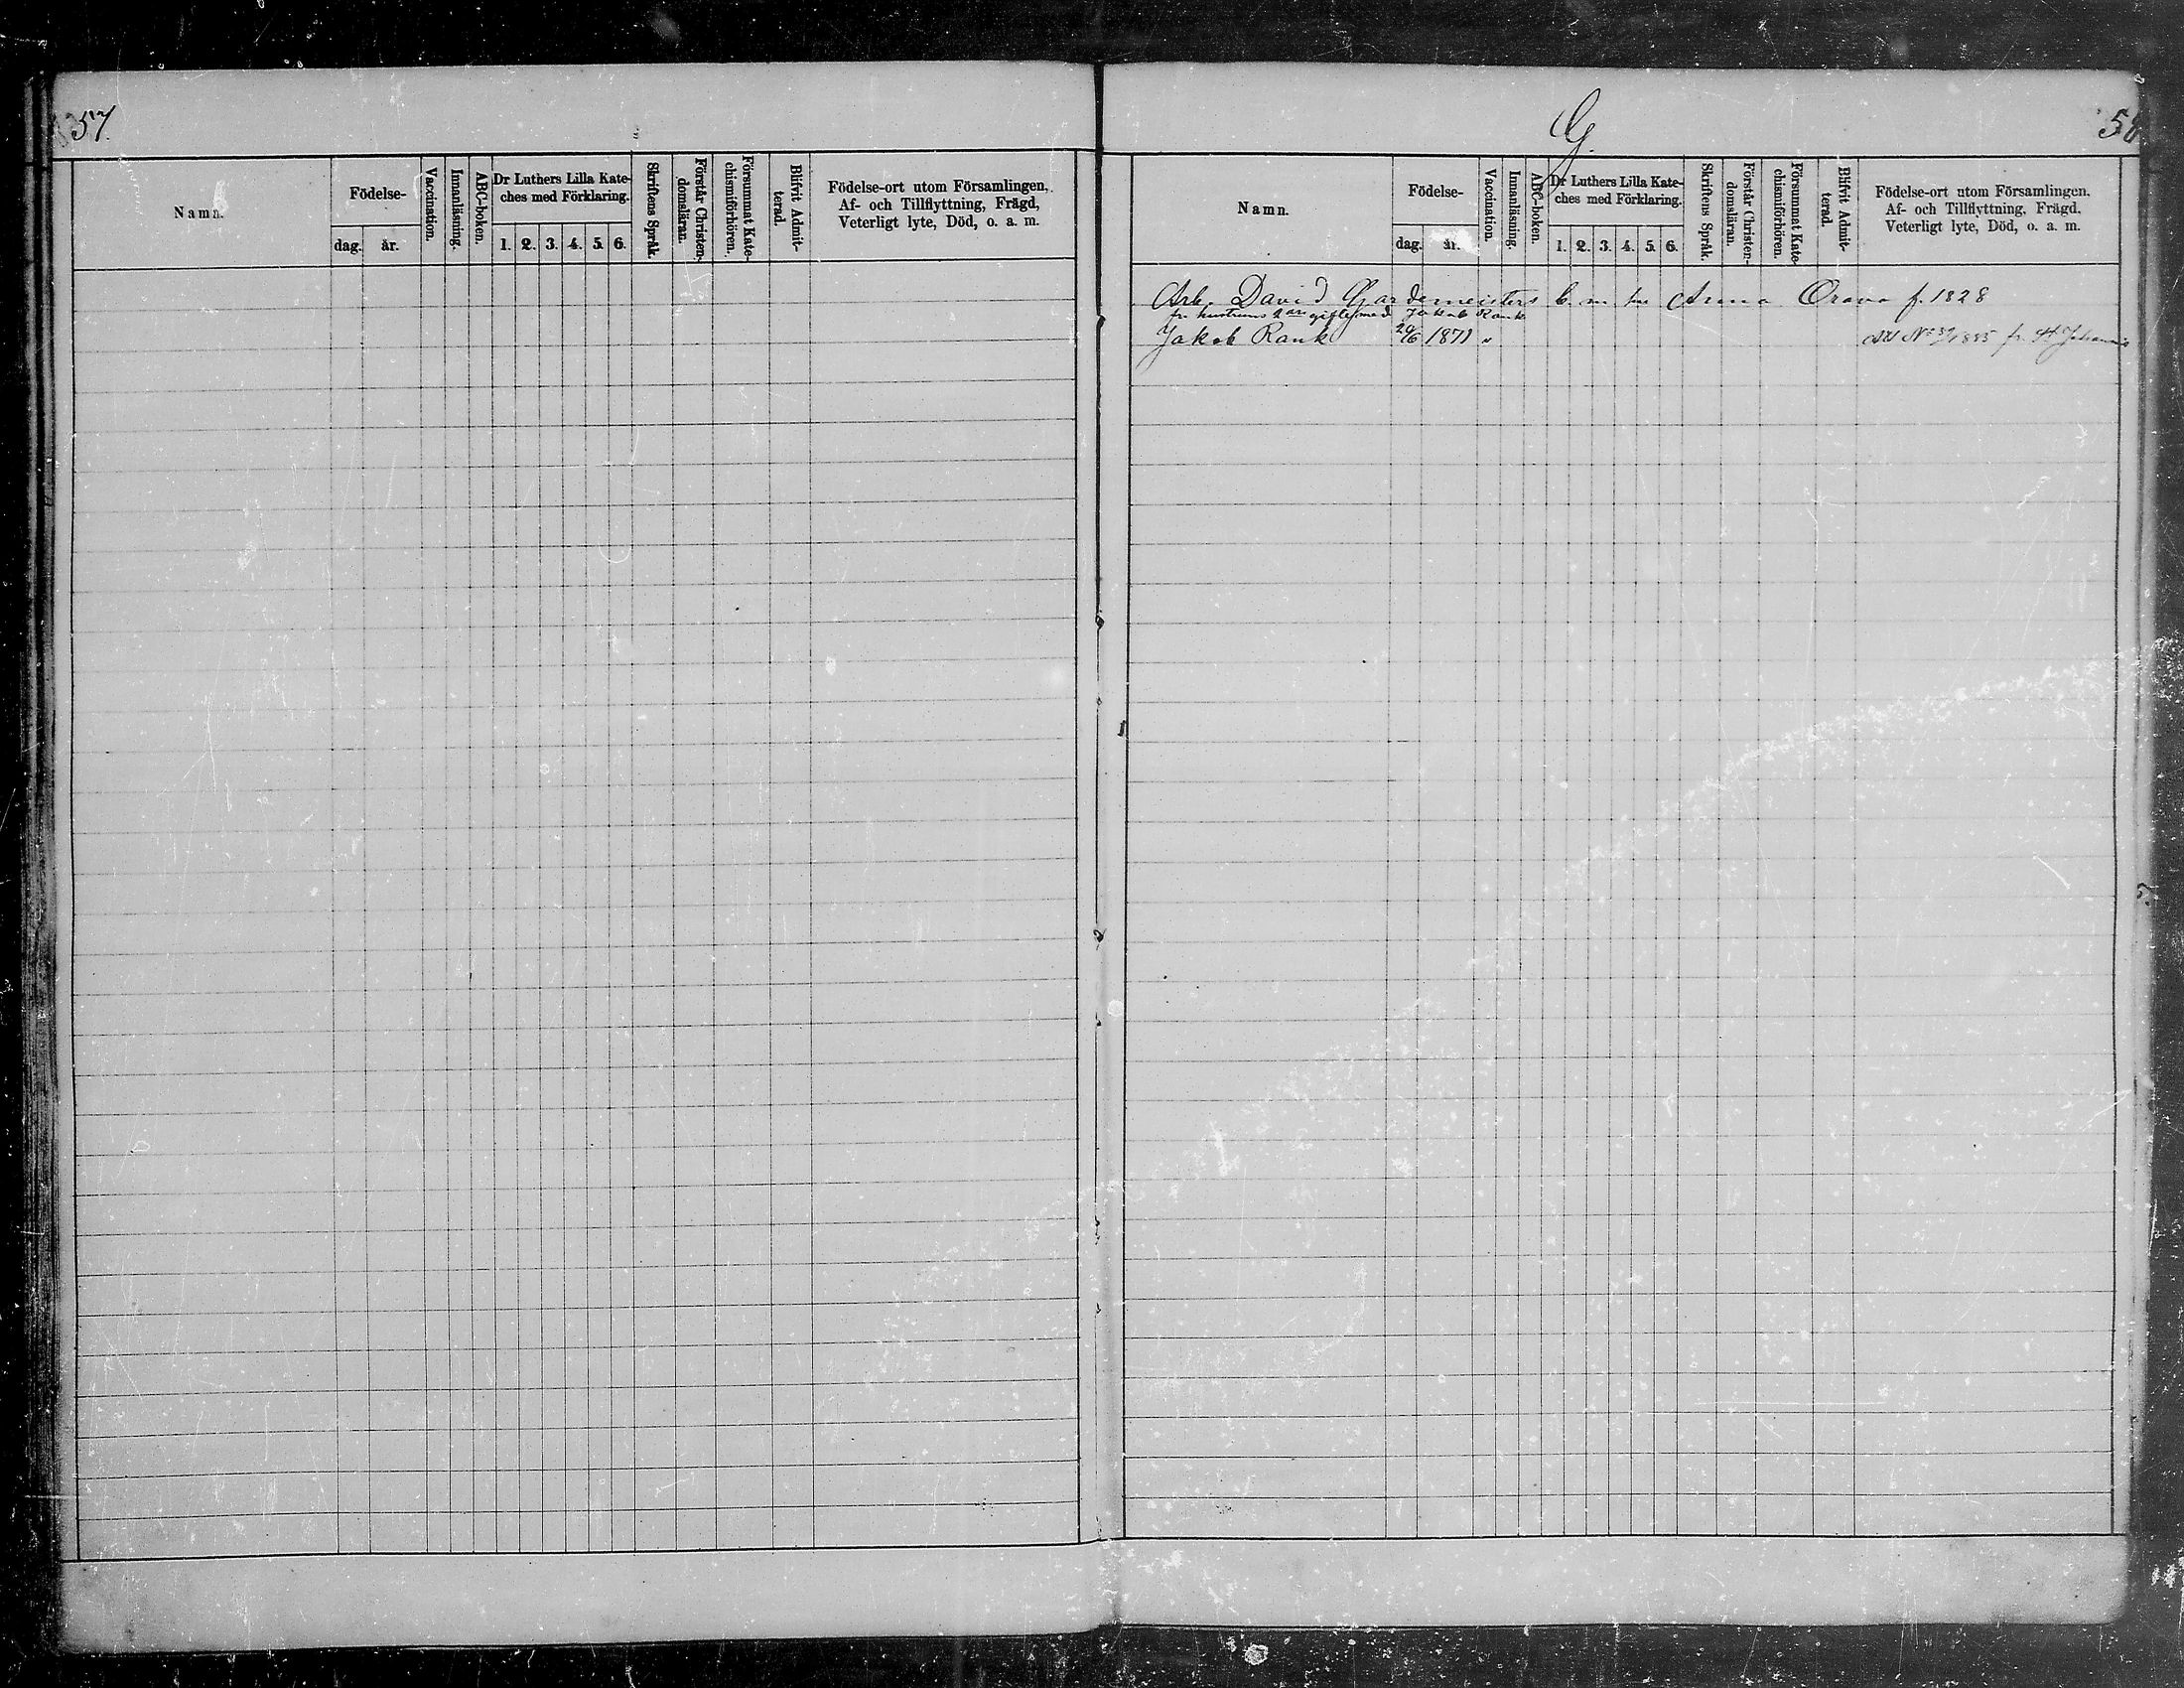 57.
Namn.
Födelse-
dag.
år.
Vaccination.
Innanläsning.
ABC-boken.
Dr Luthers Lilla Kate-
ches med Förklaring.
1. 2. 3. 4. 5. 6.
Skriftens Språk.
Förstår Christen-
domsläran.
Försummat Kate-
chismiförhören.
Blifvit Admit-
terad.
Födelse-ort utom Församlingen,
Af- och Tillflyttning, Frägd,
Veterligt lyte, Död, o. a. m.
G.
58
Namn.
Födelse-
dag.
år.
Vaccination.
Innanläsning.
ABC-boken.
Dr Luthers Lilla Kate-
ches med Förklaring.
1. 2. 3. 4. 5. 6.
Skriftens Språk.
Förstår Christen-
domsläran.
Försummat Kate-
chismiförhören.
Blifvit Admit-
terad.
Födelse-ort utom Församlingen,
Af- och Tillflyttning, Frägd,
Veterligt lyte, Död, o. a. m.
Arb. David Gardemeisters b. m. hu Anna Orava f. 1828
fr. hustruns 2 an gifte med Jakob Rank
Jakob Rank 20/6 1871 " 1885 fr. St Johannis